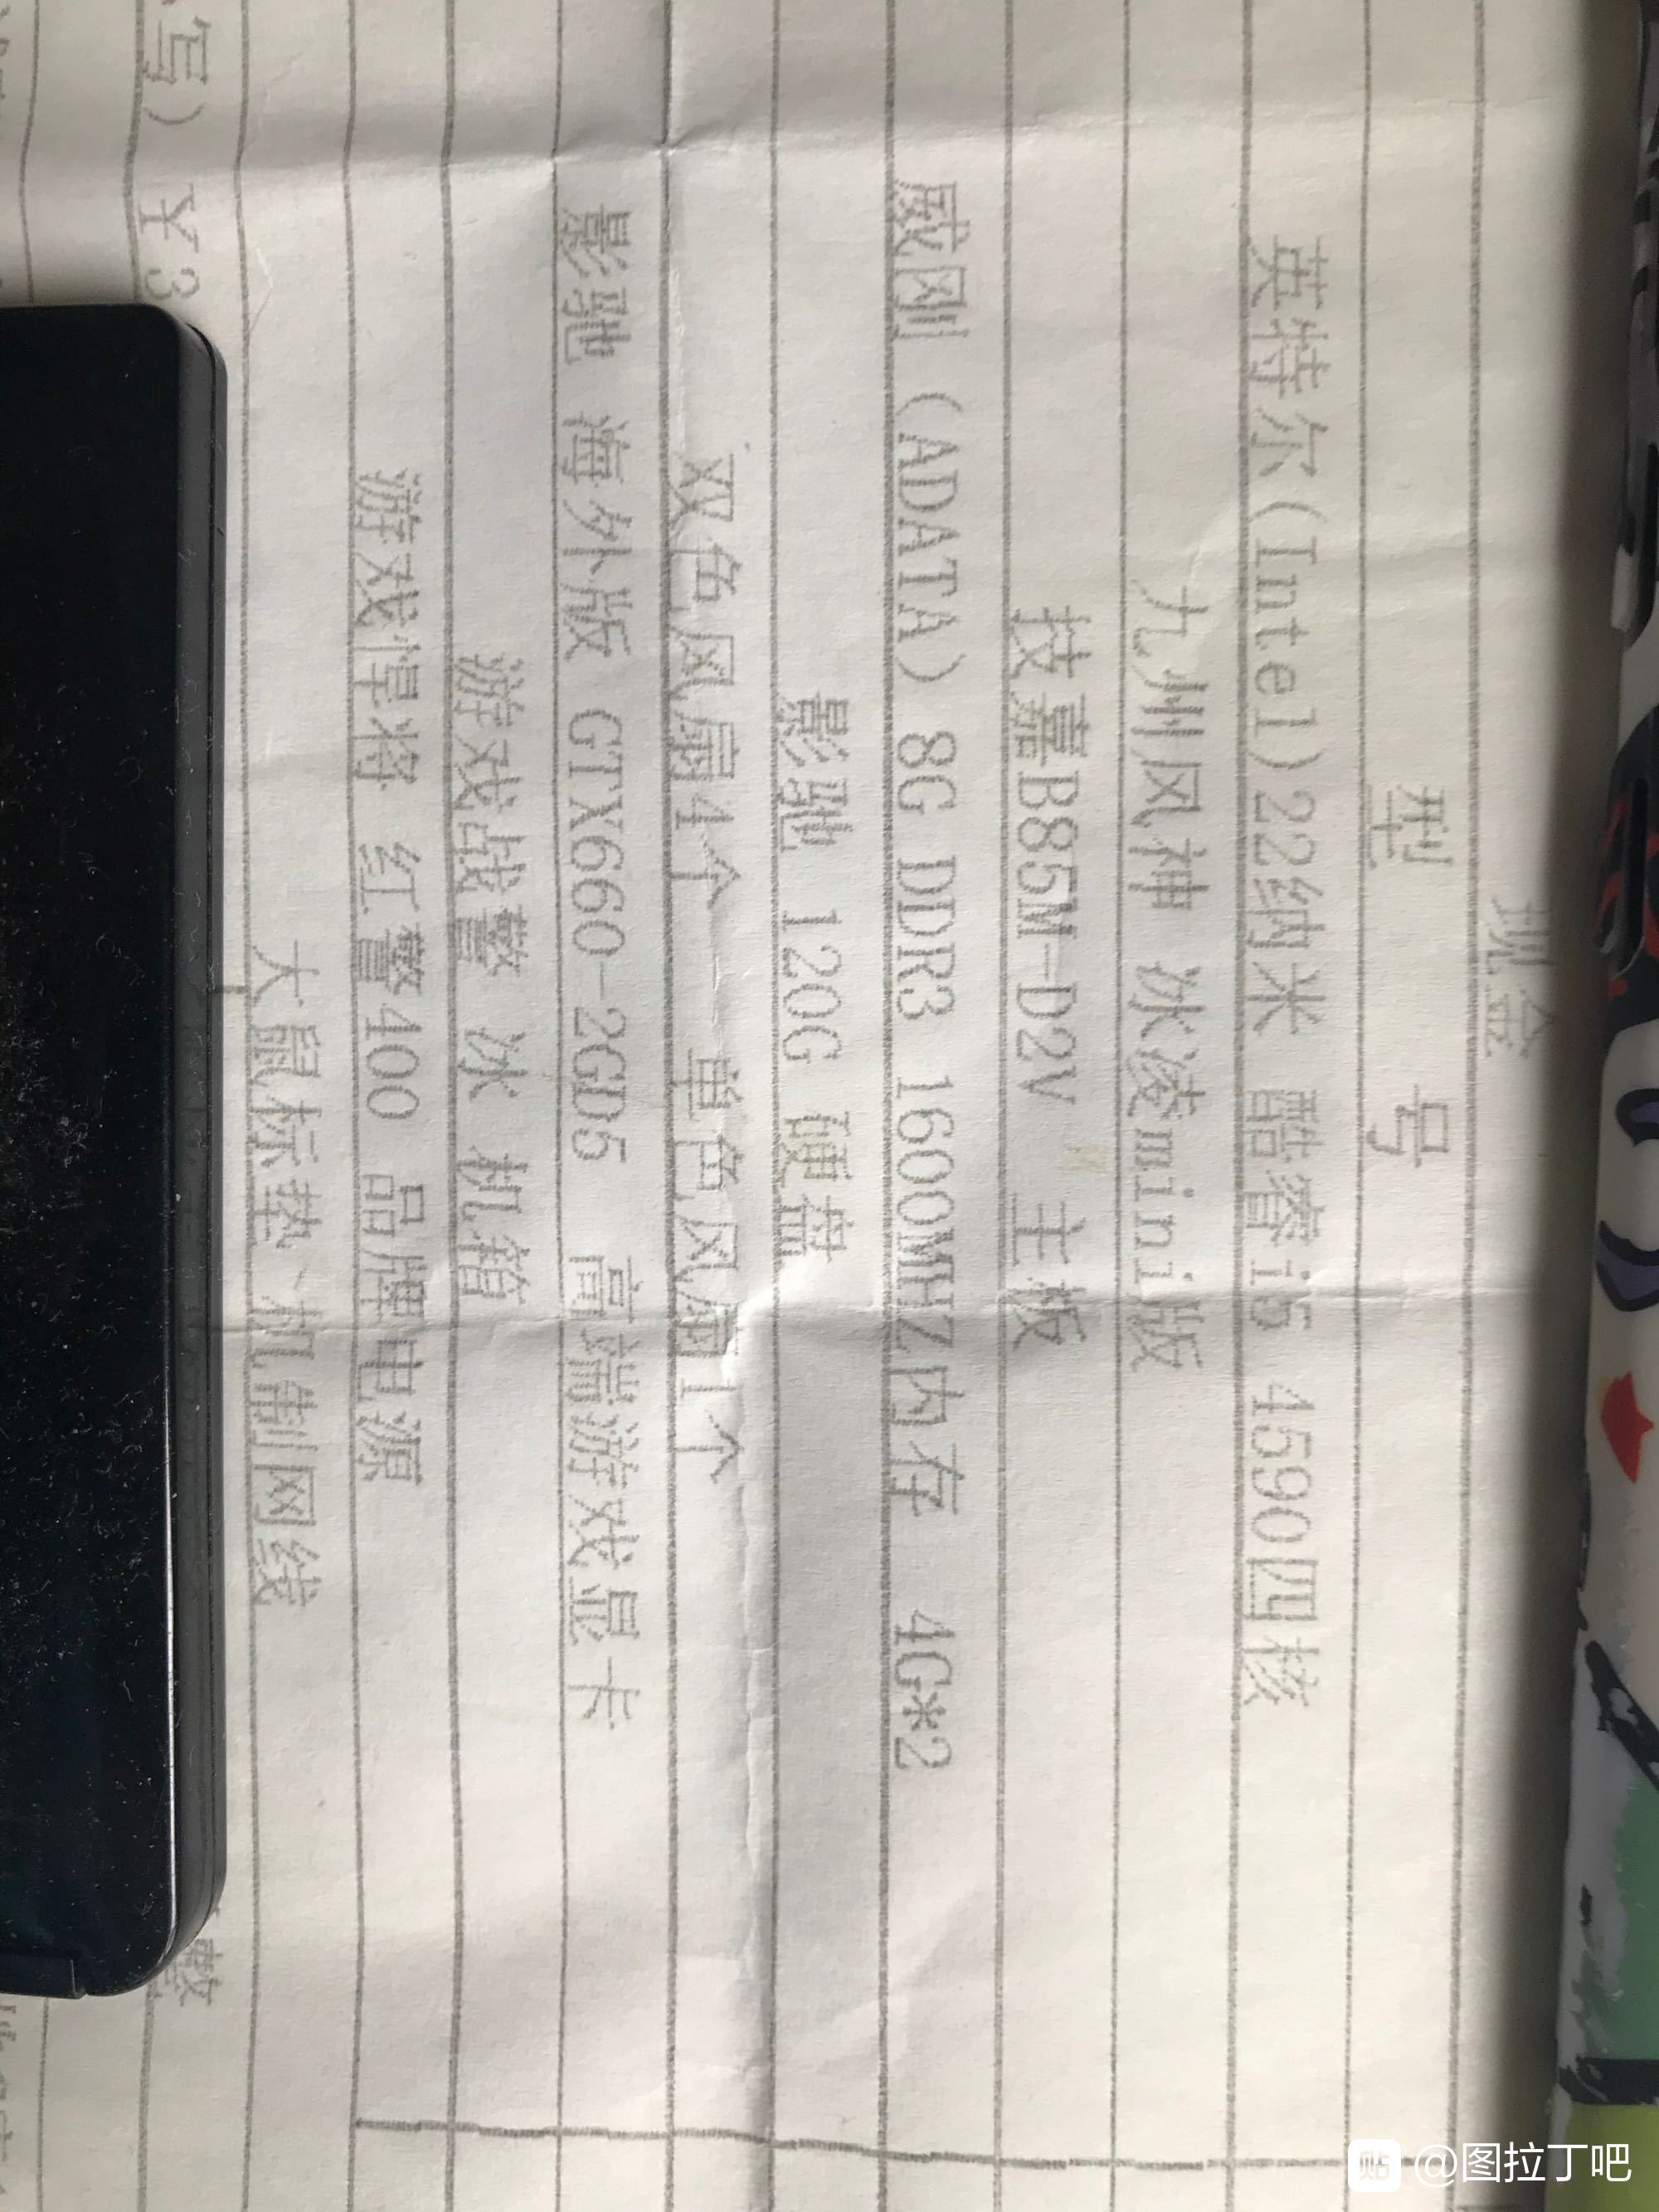 现金
型 号
英特尔(Intel)22纳米 酷睿i5 4590四核
九州风神 冰凌mini版
技嘉B85M-D2V 主板
威刚 (ADATA) 8G DDR3 1600MHZ内存 4G*2
影驰 120G 硬盘
双色风扇4个 单色风扇1个
影驰 海外版 GTX660-2GD5 高端游戏显卡
游戏战警 冰 机箱
游戏悍将 红警400 品牌电源
大鼠标垫、机制网线
写) ¥3
贴 @图拉丁吧